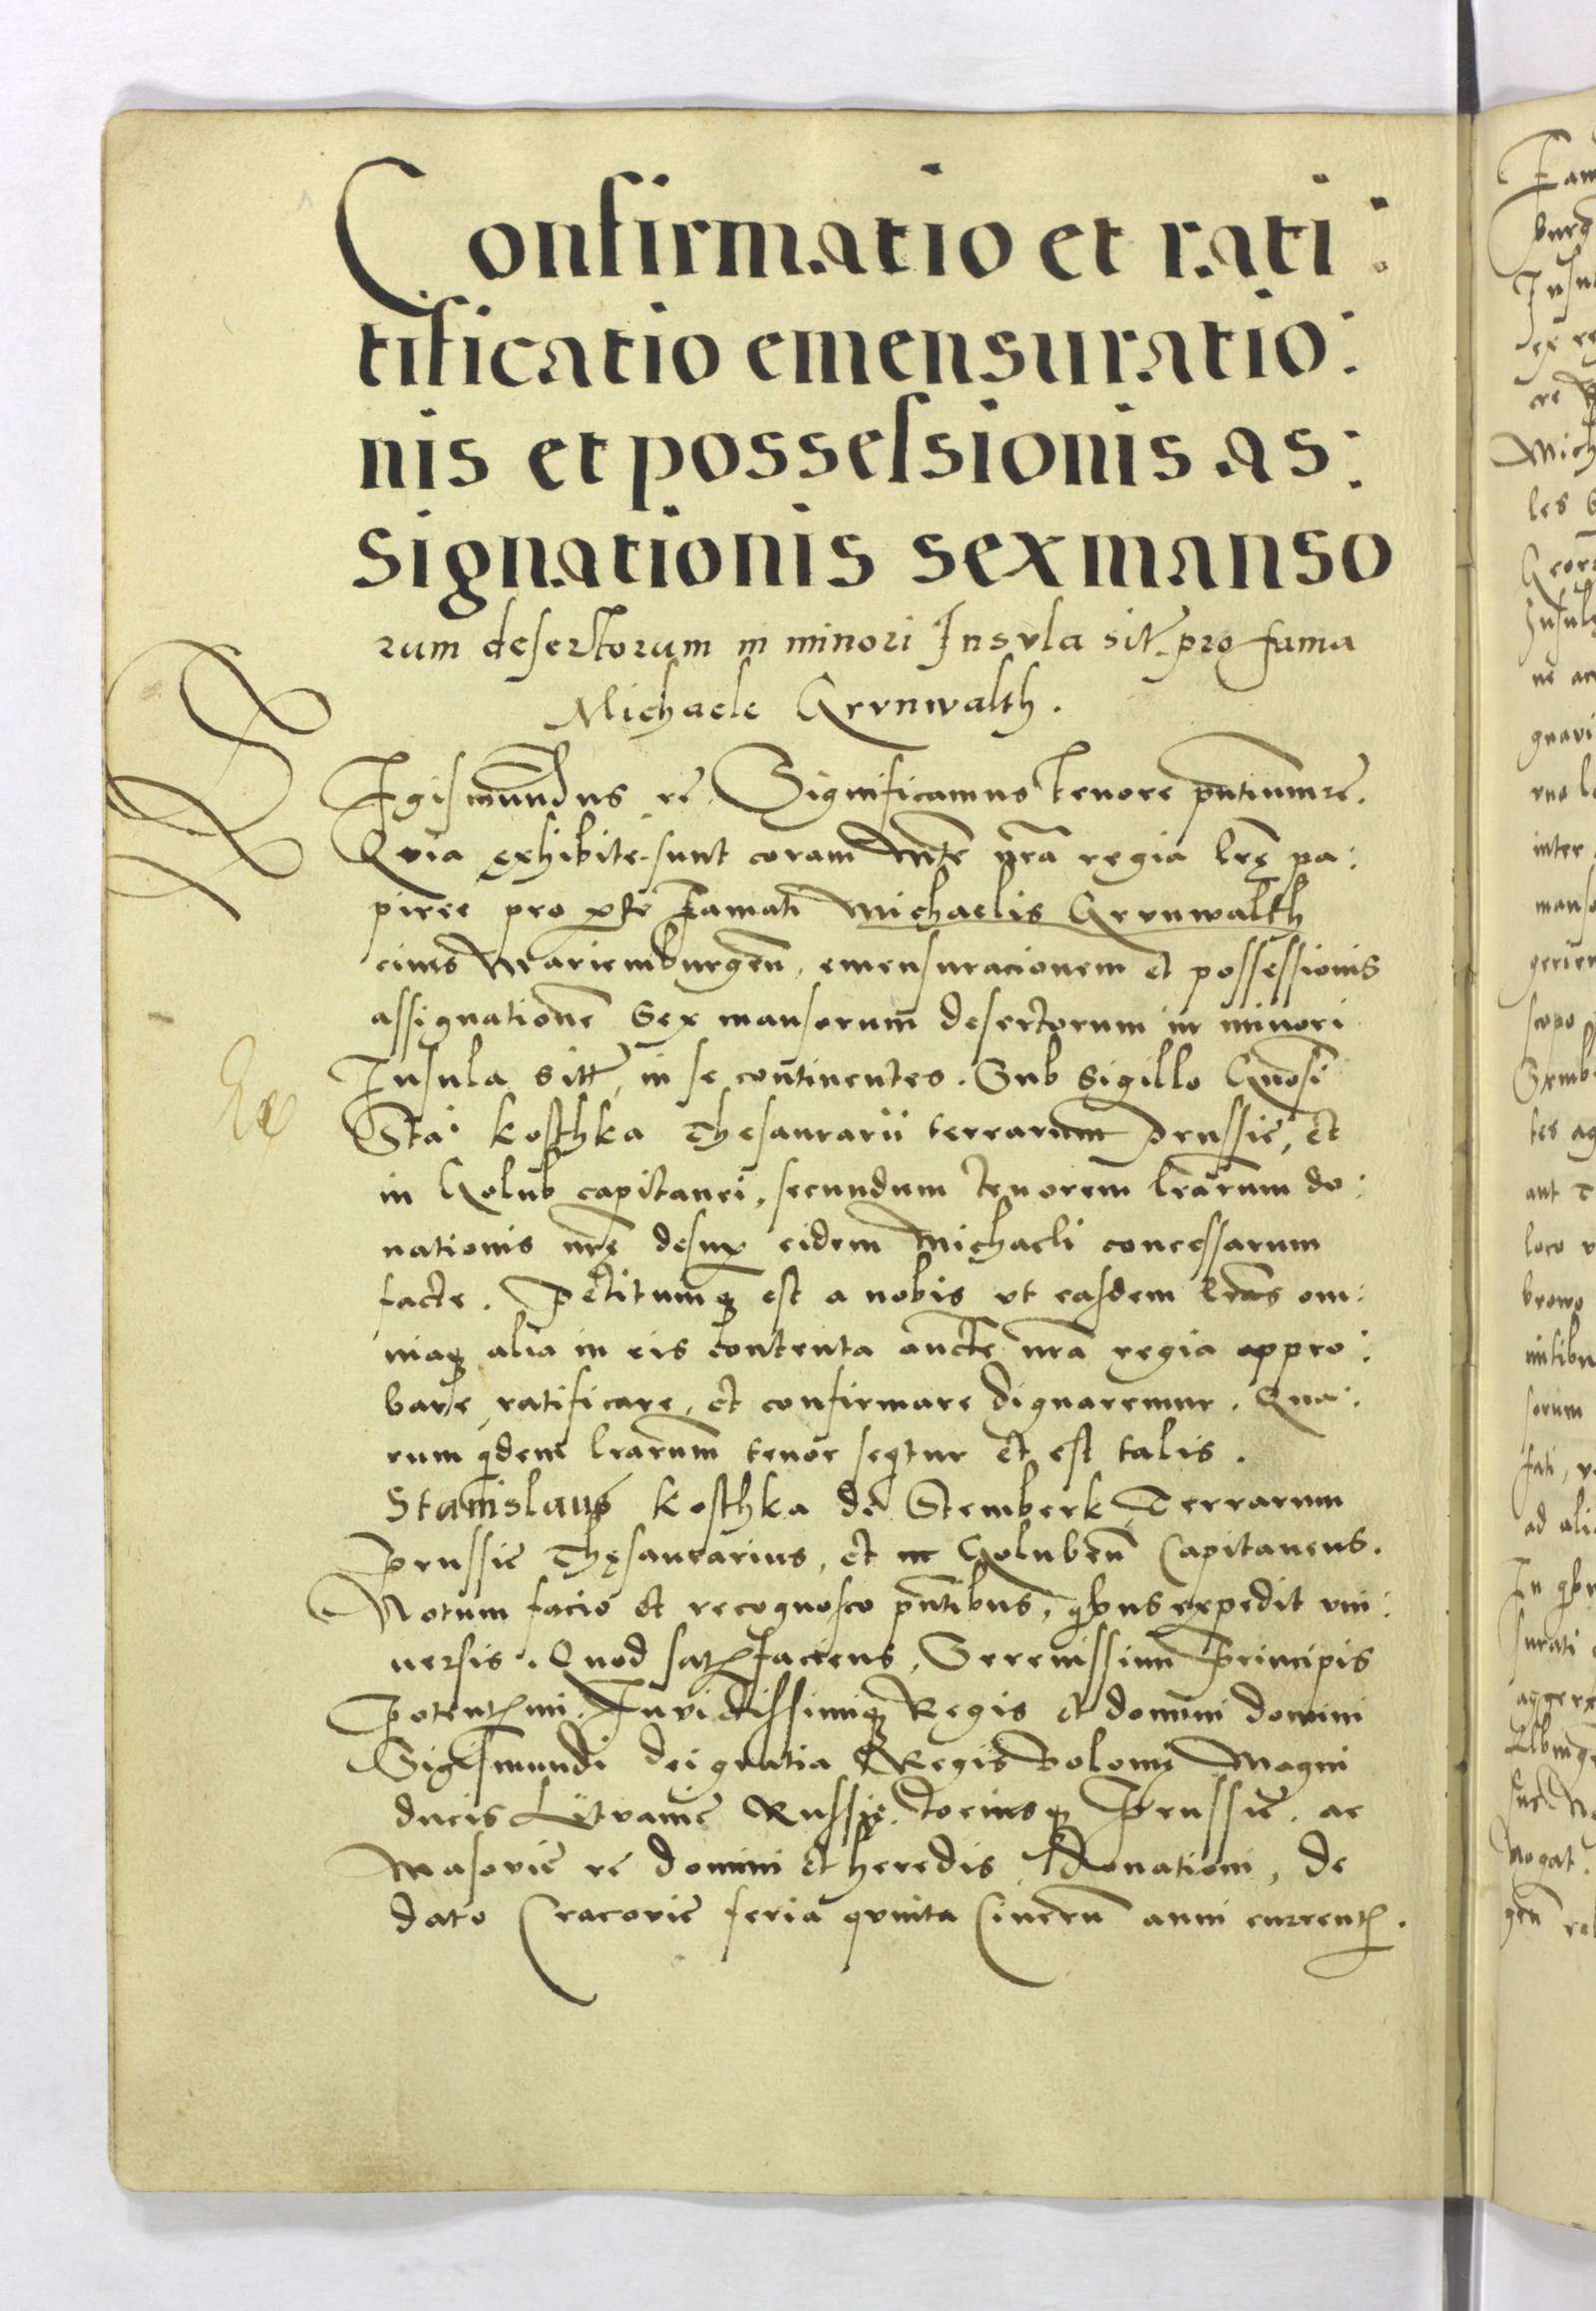 Confirmatio et rati:
tificatio emensuratio:
nis et possessionis as:
signationis sex manso
rum desertorum in minori Insula sit. pro fama
Michaele Grunwalth.
Sigismundus rẽ. Significamus tenore pñtium rẽ.
Quia exhibite sunt coram Mte ñra regia lrẽ pa:
piree pro pte Famati Michaelis Grunwalth
civis Mariemburgeñ, emensuracionem et possessionis
assignationẽ Sex mansorum desertorum in minori
Insula sitt, in se continentes. Sub Sigillo Gñosi
Sta: Kosthka Thesaurarii terrarum Prussie, et
in Golub capitanei, secundum tenorem lrarum do:
nationis nrẽ desup eidem Michaeli concessarum
facte. Petitumq est a nobis ut easdem lras om:
niaq alia in eis contenta aucte nra regia appro:
bare ratificare, et confirmare dignaremur. Qua:
rum qdem lrarum tenor seqtur et est talis.
Stanislaus Kosthka de Stemberk Terrarum
Prussie Thesaurarius, et in Golubeñ Capitaneus.
Notum facio et recognosco pñtibus, qbus expedit uni:
uersis. Quod satisfaciens, Serenissimi Principis
Potentimi Invictissimiq Regis et domini domini
Sigismundi dei gratia Regis Polonie Magni
ducis Lituanie Russie, tociusq Prussie, ac
Masovie rẽ domini et heredis donationi, de
dato Cracovie feria quinta Cinerũ anni currentis.